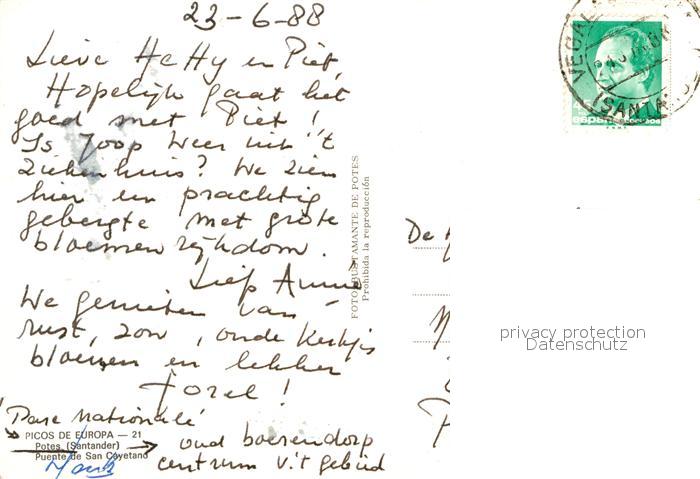 23-6-88
Lieve Hetty en Piet,
Hopelijk gaat het
goed met Piet!
Is Joop weer uit 't
ziekenhuis? We zien
hier een prachtig
gebergte met grote
bloemenrijkdom.
Liefs Annie
We genieten van
rust, zon, oude kerkjes
bloemen en lekker
forel!
Parc Nationale
PICOS DE EUROPA — 21
Potes (Santander)
Puente de San Cayetano
oud boerendorp
centrum v.'t gebied
FOTO BUSTAMANTE DE POTES
Prohibida la reproducción
De
(SANTA
España
privacy protection
Datenschutz